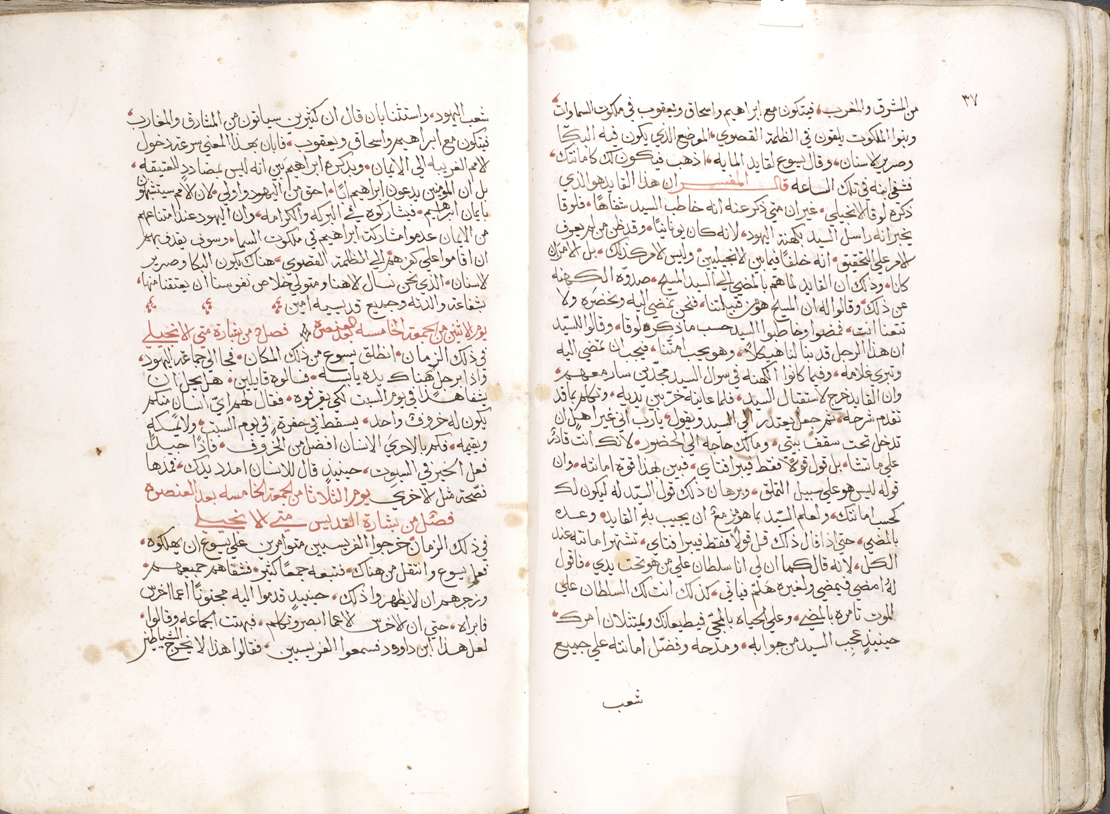 ٣٧
من المشرق والمغرب، فيتكون مع ابراهيم واسحاق ويعقوب في ملكوت السماوات
وبنوا الملكوت يلقون في الظلمة القصوي، الموضع الذي يكون فيه البكا
وصرير الاسنان، وقال يسوع لقايد المايه، اذهب فيكون لك كامانتك
فشفي ابنه في تلك الساعه قال المفسر ان هذا القايد هو الذي
ذكره لوقا الانجيلي، غير ان متي ذكر عنه انه خاطب السيد شفاهًا، فلوقا
يخبر انه راسل السيد بكهنة اليهود، لانه كان يونانيًا، وقد ظن من لم يعرف
الامر علي الحقيق، انه خلفًا فيما بين الانجيليين وليس الامر كذلك، بل الامران
كانا، وذلك ان القايد لما هم بالمضي الي السيد المسيح، صدوّه الكهنه
عن ذلك، وقالوا له ان المسيح هو من قبيلتنا، فنحن نمضي اليه ونحضره ولا
تتعنا انت، فمضوا وخاطبوا السيد حسب ما ذكره لوقا، وقالوا للسيد
ان هذا الرجل قد بنا لنا هيكلاً، وهو يحب امتنا، فيجب ان تمضي اليه
وتبري غلامه، وفيما كانوا الكهنه في سوال السيد مجدّين سار معهم،
وان القايد خرج لاستقبال السيد، فلما عاينه خرّ بين يديه، وتكلم بما قد
تقدم شرحه، ثم جعل يعتذر الي السيد ويقول، يا رب اني غير اهلٍ ان
تدخل تحت سقف بيتي، وما لك حاجه الي الحضور، لانك انت قادر
علي ما تشا، بل قول قولاً فقط فيبرا فتاي، فبين بهذا قوة امانته، وان
قوله ليس هو علي سبيل التملق، وبرهان ذلك قول السيد له ليكون لك
كحسب امانتك، ولعلم السيّد بما هو مزمع ان يجيب به القايد، وعده
بالمضي، حتي اذا قال ذلك قل قولاً فقط فيبرا فتاي، تشتهر امانته عند
الكل، لانه قال كما ان لي انا سلطان علي من هو تحت يدي، فاقول
لهُ امضي فيمضي ولغيره هلمّ فياتي، كذلك انت لك السلطان علي
الموت تامره بالمضي، وعلي الحياه بالمجيّ فيطيعانك ويمتثلان امرك،
حينيذٍ عجب السيد من جوابه، ومدحه وفضّل امانته علي جميع
شعب
شعب اليهود، واستثنا بان قال ان كثيرين سياتون من المشارق والمغارب
فيتكون مع ابراهيم واسحاق ويعقوب، فابان بهذا المعني سرعة دخول
الامم الغريبه الي الايمان، وبذكره ابراهيم بين انه ليس بمضادد للعتيقه،
بل ان المومنين يدعون ابراهيم ابًا، احق من اليهود واولي، لان الامم سيتشبهون
بايمان ابراهيم، فيشاركوه في البركه والكرامه، وان اليهود عند امتناعهم
من الايمان عدموا مشاركة ابراهيم في ملكوت السما، وسوف يقذف بهم
ان اقاموا علي كفرهم الي الظلمة القصوي، هناك يكون البكا وصرير
الاسنان، الذي نحن نسال الاهنا ومتولي خلاص نفوسنا ان يعتقنا منها،
بشفاعة والدته وجميع قديسيه امين
يوم الاثنين من الجمعة الخامسه بعد العنصره فصل من بشارة متي الانجيلي
في ذلك الزمان، انطلق يسوع من ذلك المكان، فجا الي جماعة اليهود
واذا برجل هناك يده يابسه، فسالوه قايلين، هل يحل ان
يشفا هذا في يوم السبت لكي يقرفوه، فقال لهم ايّ انسان منكم
يكون له خروفٌ واحد، يسقط في حفره في يوم السبت، ولا يمسكه
ويقيمه، فكم بالاحري الانسان افضل من الخروف، فاذًا جيدًا
فعل الخير في السبوت، حينيذٍ قال للانسان امدد يدك، فمدها
فصحّت مثل الاخري يوم الثلاثا من الجمعة الخامسه بعد العنصره
فصل من بشارة القديس متي الانجيلي
في ذلك الزمان خرجوا الفريسيين متوامرين علي يسوع ان يهلكوه
فعلم يسوع وانتقل من هناك، فتبعه جمعًا كثير، فشفاهم جميعهم،
وزجرهم ان لا يظهروا ذلك، حينيذٍ قدموا اليه مجنونًا اعما اخرس
فابراه، حتي ان الاخرس الاعما ابصر وتكلم، فبهتت الجماعه وقالوا،
لعل هذا ابن داوود فسمعوا الفريسيين، فقالوا هذا لا يخرج الشياطين